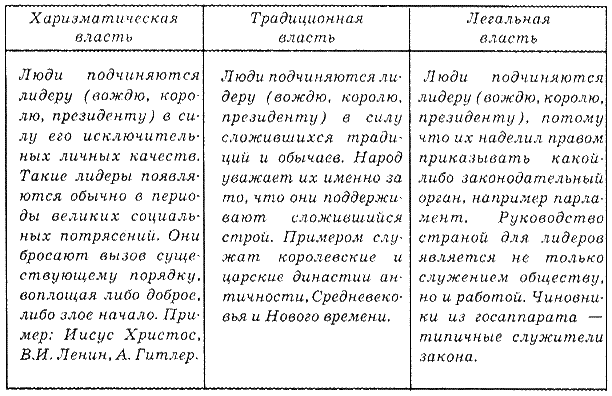 Харизматическая
власть
Традиционная
власть
Легальная
власть
Люди подчиняются
лидеру (вождю, коро-
лю, президенту) в си-
лу его исключитель-
ных личных качеств.
Такие лидеры появля-
ются обычно в перио-
ды великих социаль-
ных потрясений. Они
бросают вызов суще-
ствующему порядку,
воплощая либо доброе,
либо злое начало. При-
мер: Иисус Христос,
В.И. Ленин, А. Гитлер.
Люди подчиняются ли-
деру (вождю, королю,
президенту) в силу
сложившихся тради-
ций и обычаев. Народ
уважает их именно за
то, что они поддержи-
вают сложившийся
строй. Примером слу-
жат королевские и
царские династии ан-
тичности, Средневеко-
вья и Нового времени.
Люди подчиняются
лидеру (вождю, королю,
президенту), потому
что их наделил правом
приказывать какой-
либо законодательный
орган, например парла-
мент. Руководство
страной для лидеров
является не только
служением обществу,
но и работой. Чиновни-
ки из госаппарата —
типичные служители
закона.